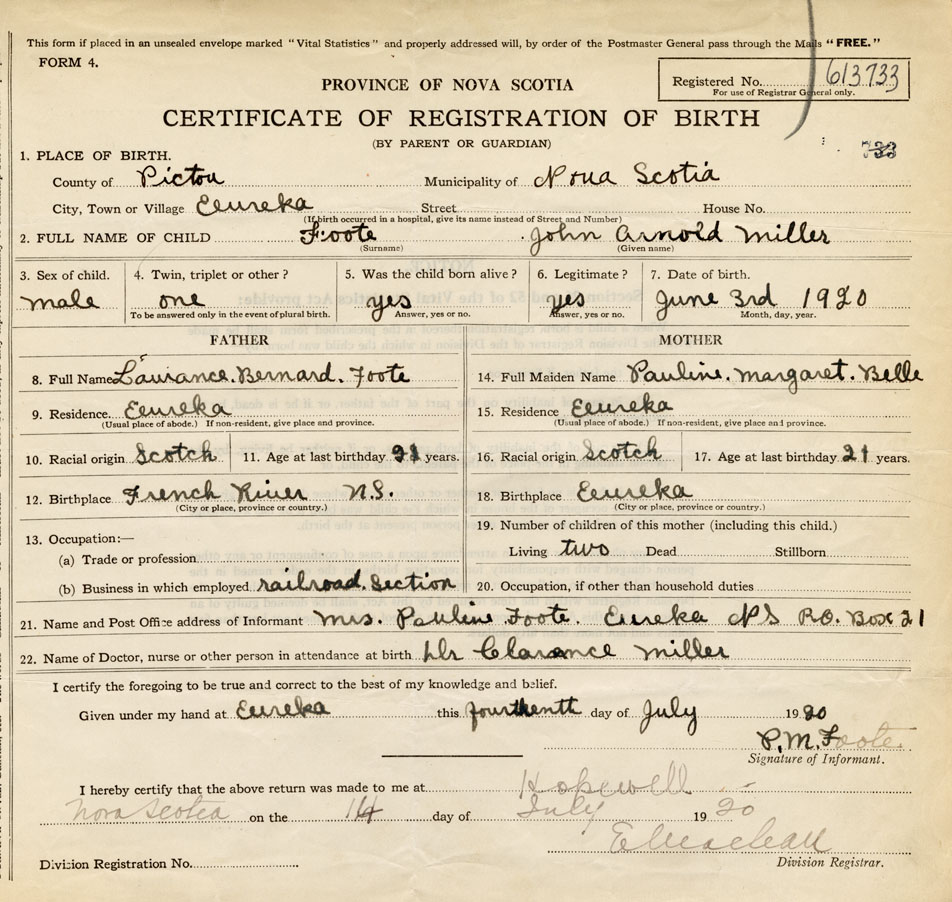 This form if placed in an unsealed envelope marked "Vital Statistics" and properly addressed will, by order of the Postmaster General pass through the Mails "FREE."
FORM 4.
Registered No. 613733
For use of Registrar General only.
PROVINCE OF NOVA SCOTIA
CERTIFICATE OF REGISTRATION OF BIRTH
(BY PARENT OR GUARDIAN)
733
1. PLACE OF BIRTH.
County of Pictou Municipality of Nova Scotia
City, Town or Village Eeureka Street House No.
(If birth occurred in a hospital, give its name instead of Street and Number)
2. FULL NAME OF CHILD Foote John Arnold Miller
(Surname) (Given name)
3. Sex of child. 4. Twin, triplet or other? 5. Was the child born alive? 6. Legitimate? 7. Date of birth.
male one yes yes June 3rd 1920
To be answered only in the event of plural birth. Answer, yes or no. Answer, yes or no. Month, day, year.
FATHER
8. Full Name Laurance. Bernard. Foote
9. Residence Eeureka
(Usual place of abode.) If non-resident, give place and province.
10. Racial origin Scotch 11. Age at last birthday 21 years.
12. Birthplace French River N.S.
(City or place, province or country.)
13. Occupation:—
(a) Trade or profession
(b) Business in which employed railroad. Section
MOTHER
14. Full Maiden Name Pauline. Margaret. Belle
15. Residence Eeureka
(Usual place of abode.) If non-resident, give place and province.
16. Racial origin Scotch 17. Age at last birthday 21 years.
18. Birthplace Eeureka
(City or place, province or country.)
19. Number of children of this mother (including this child.)
Living two Dead Stillborn
20. Occupation, if other than household duties
21. Name and Post Office address of Informant Mrs. Pauline Foote. Eureka NS P.O. Box 21
22. Name of Doctor, nurse or other person in attendance at birth Dr Clarance Miller
I certify the foregoing to be true and correct to the best of my knowledge and belief.
Given under my hand at Eeureka this fourthenth day of July 1920
P.M. Foote.
Signature of Informant.
I hereby certify that the above return was made to me at Hopewell
Nova Scotia on the 14 day of July 1920
E Maclean
Division Registrar.
Division Registration No.